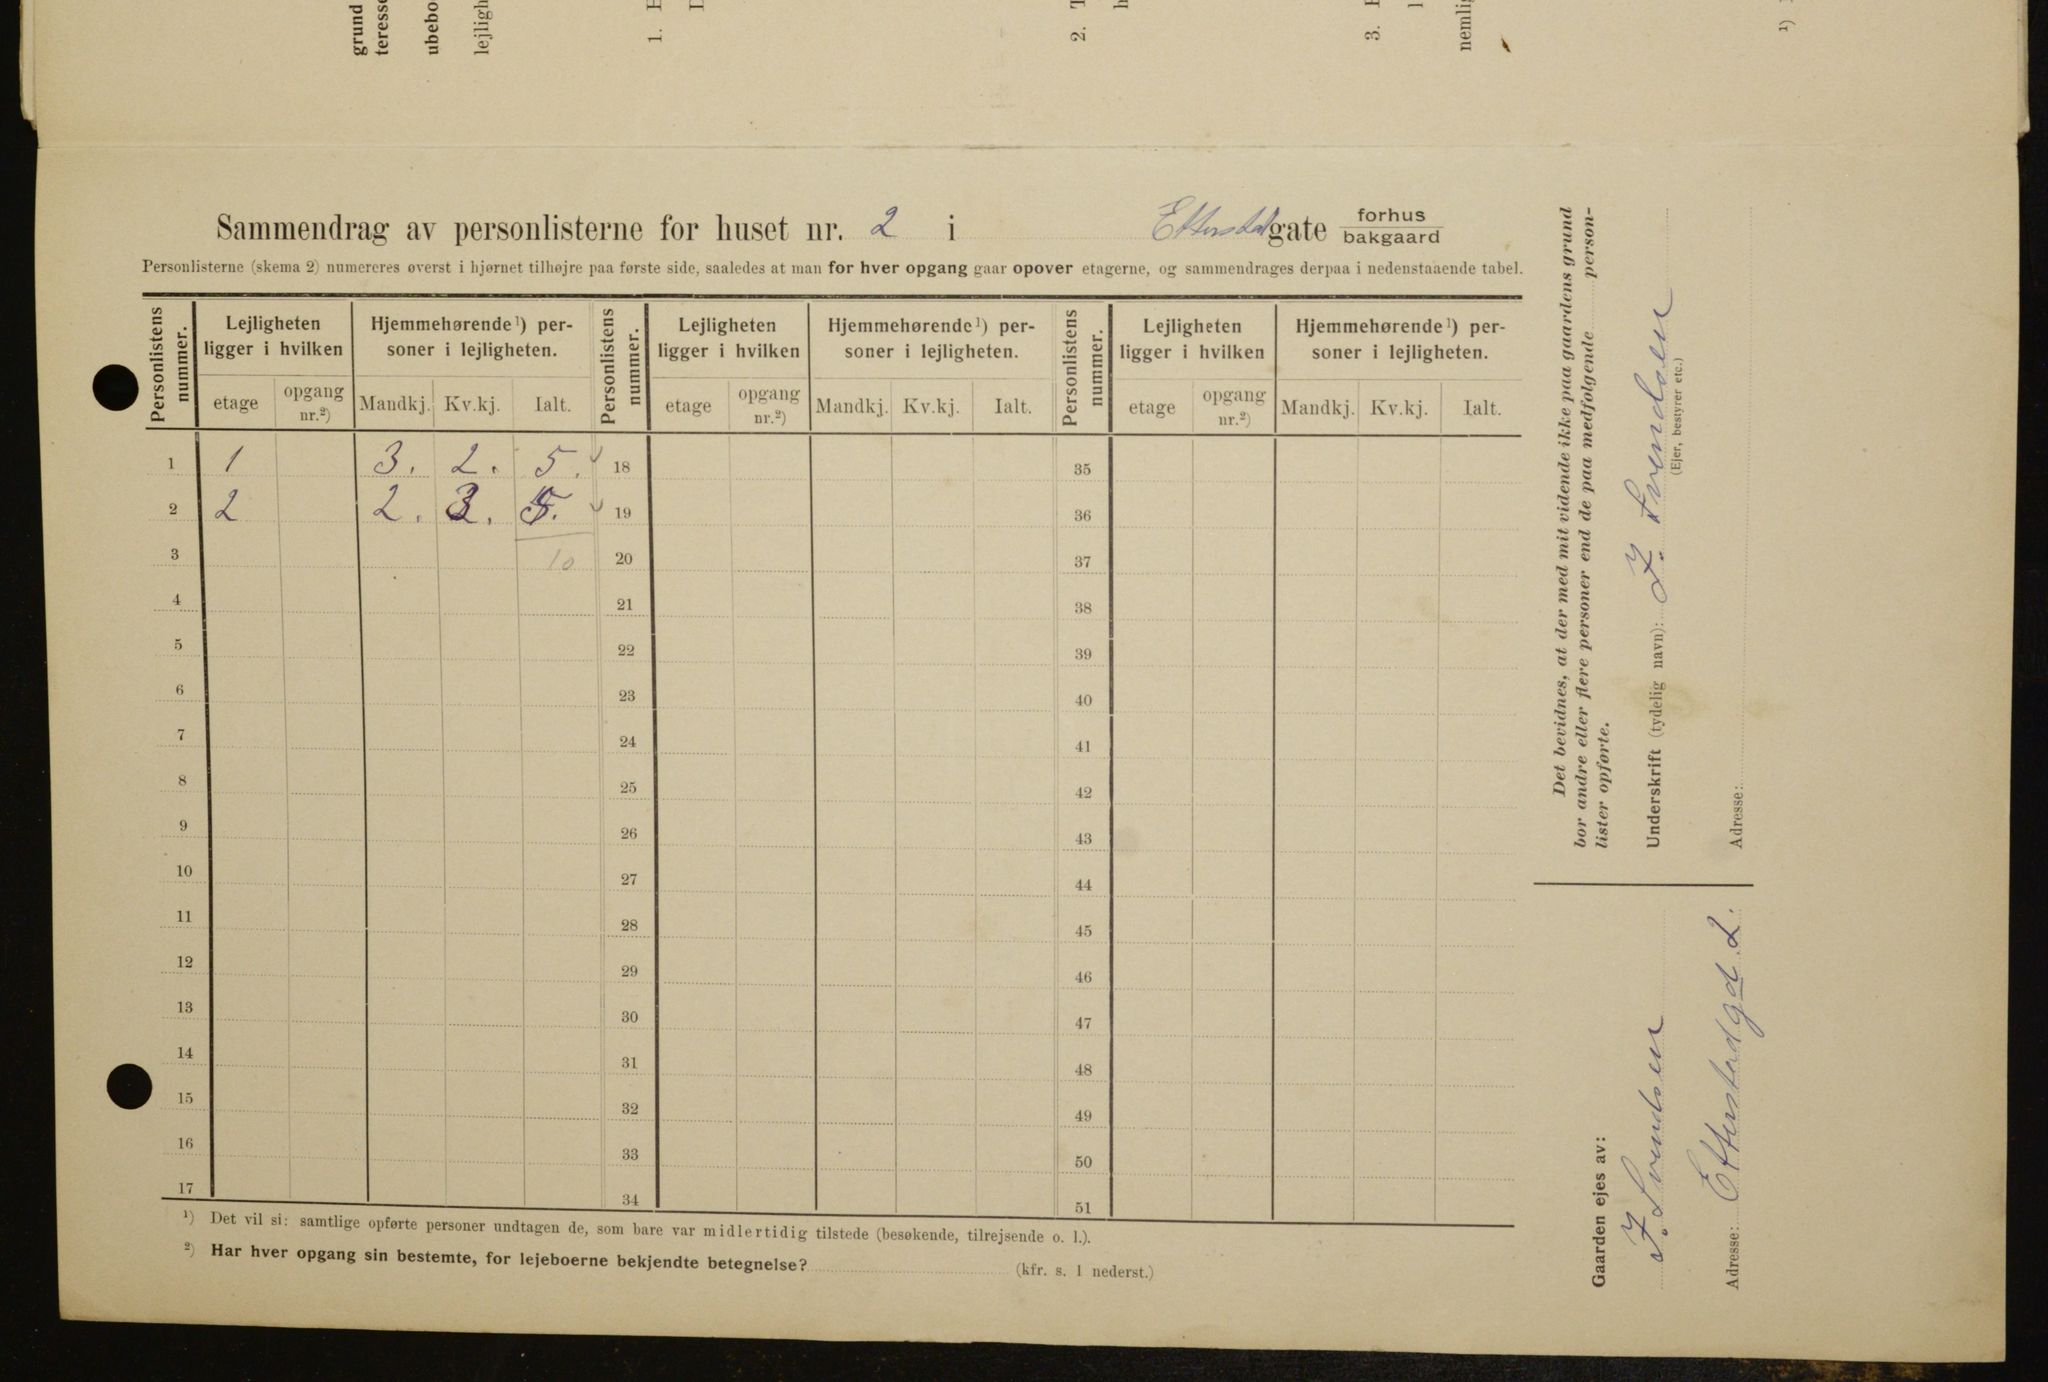 grund
teresse
ubebo
lejligh
1. H
2. T
h
3. H
nemlig
¹)
Sammendrag av personlisterne for huset nr. 2 i Etterstad gate forhus
bakgaard
Personlisterne (skema 2) numereres øverst i hjørnet tilhøjre paa første side, saaledes at man for hver opgang gaar opover etagerne, og sammendrages derpaa i nedenstaaende tabel.
Personlistens nummer. Lejligheten ligger i hvilken Hjemmehørende ¹) personer i lejligheten. Personlistens nummer. Lejligheten ligger i hvilken Hjemmehørende ¹) per-
soner i lejligheten. Personlistens nummer. Lejligheten ligger i hvilken Hjemmehørende ¹) per-
soner i lejligheten.
etage opgang nr.²) Mandkj. Kv.kj. Ialt. etage opgang nr.²) Mandkj. Kv.kj. Ialt. etage opgang nr.²) Mandkj. Kv.kj. Ialt.
1 1 3. 2. 5. 18 35
2 2 2. 3. 5. 19 36
3 10 20 37
4 21 38
5 22 39
6 23 40
7 24 41
8 25 42
9 26 43
10 27 44
11 28 45
12 29 46
13 30 47
14 31 48
15 32 49
16 33 50
17 34 51
¹) Det vil si: samtlige opførte personer undtagen de, som bare var midlertidig tilstede (besøkende, tilrejsende o. l.).
²) Har hver opgang sin bestemte, for lejeboerne bekjendte betegnelse? (kfr. s. 1 nederst.)
Det bevidnes, at der med mit vidende ikke paa gaardens grund
bor andre eller flere personer end de paa medfølgende person-
lister opførte.
Underskrift (tydelig navn): J. Svendsen
(Ejer, bestyrer etc.)
Adresse:
Gaarden ejes av:
J. Svendsen
Adresse: Etterstadgd 2.